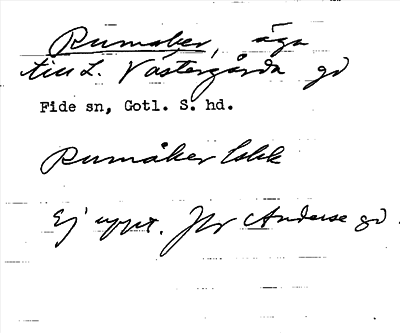 Rumåker, äga
till L. Västergårda gd
Fide sn, Gotl. S. hd.
Rumåker
Ej uppt. Jfr Anderse gd.